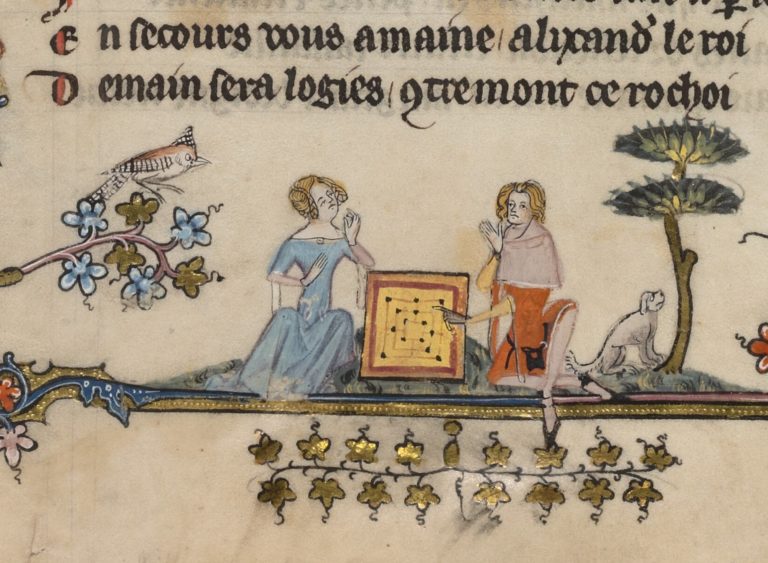 En secours vous amaine / alixand᾽ le roi
Demain sera logies / ꝯtremont ce rochoi